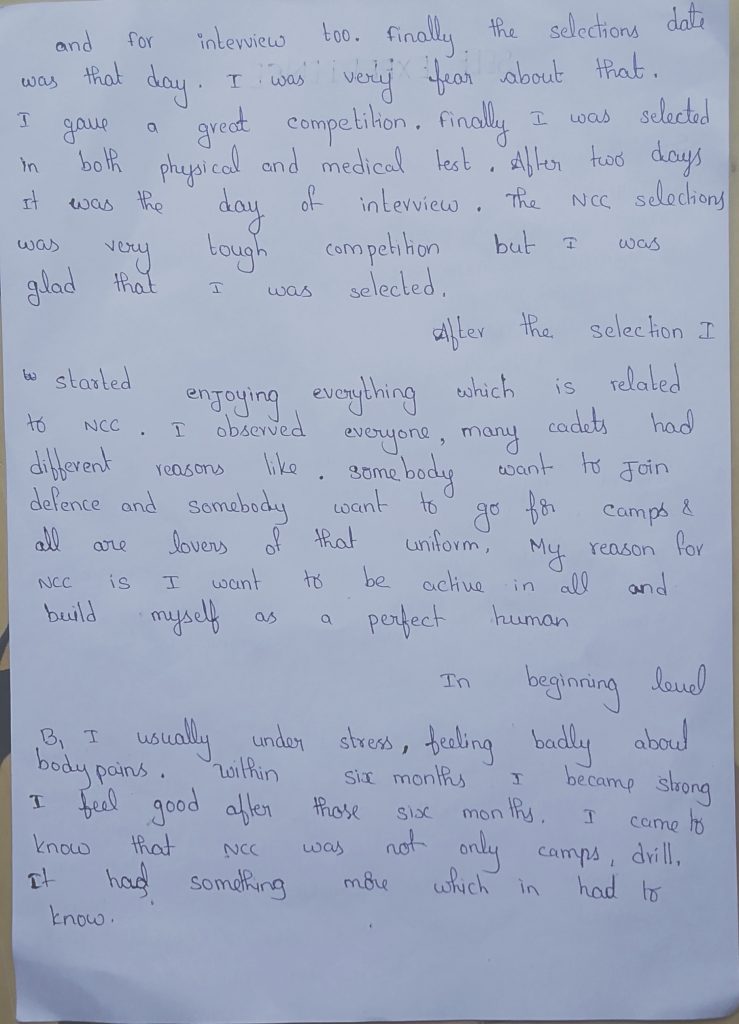 and for interview too. finally the selections date
was that day. I was very fear about that.
I gave a great competition. finally I was selected
in both physical and medical test. After two days
It was the day of interview. The NCC selections
was very tough competition but I was
glad that I was selected.
After the selection I
started enjoying everything which is related
to NCC. I observed everyone, many cadets had
different reasons like. somebody want to Join
defence and somebody want to go for camps &
all are lovers of that uniform, My reason for
NCC is I want to be active in all and
build myself as a perfect human
In beginning level
B, I usually under stress, feeling badly about
body pains. Within six months I became strong
I feel good after those six months. I came to
know that NCC was not only camps, drill,
It had something more which in had to
know.